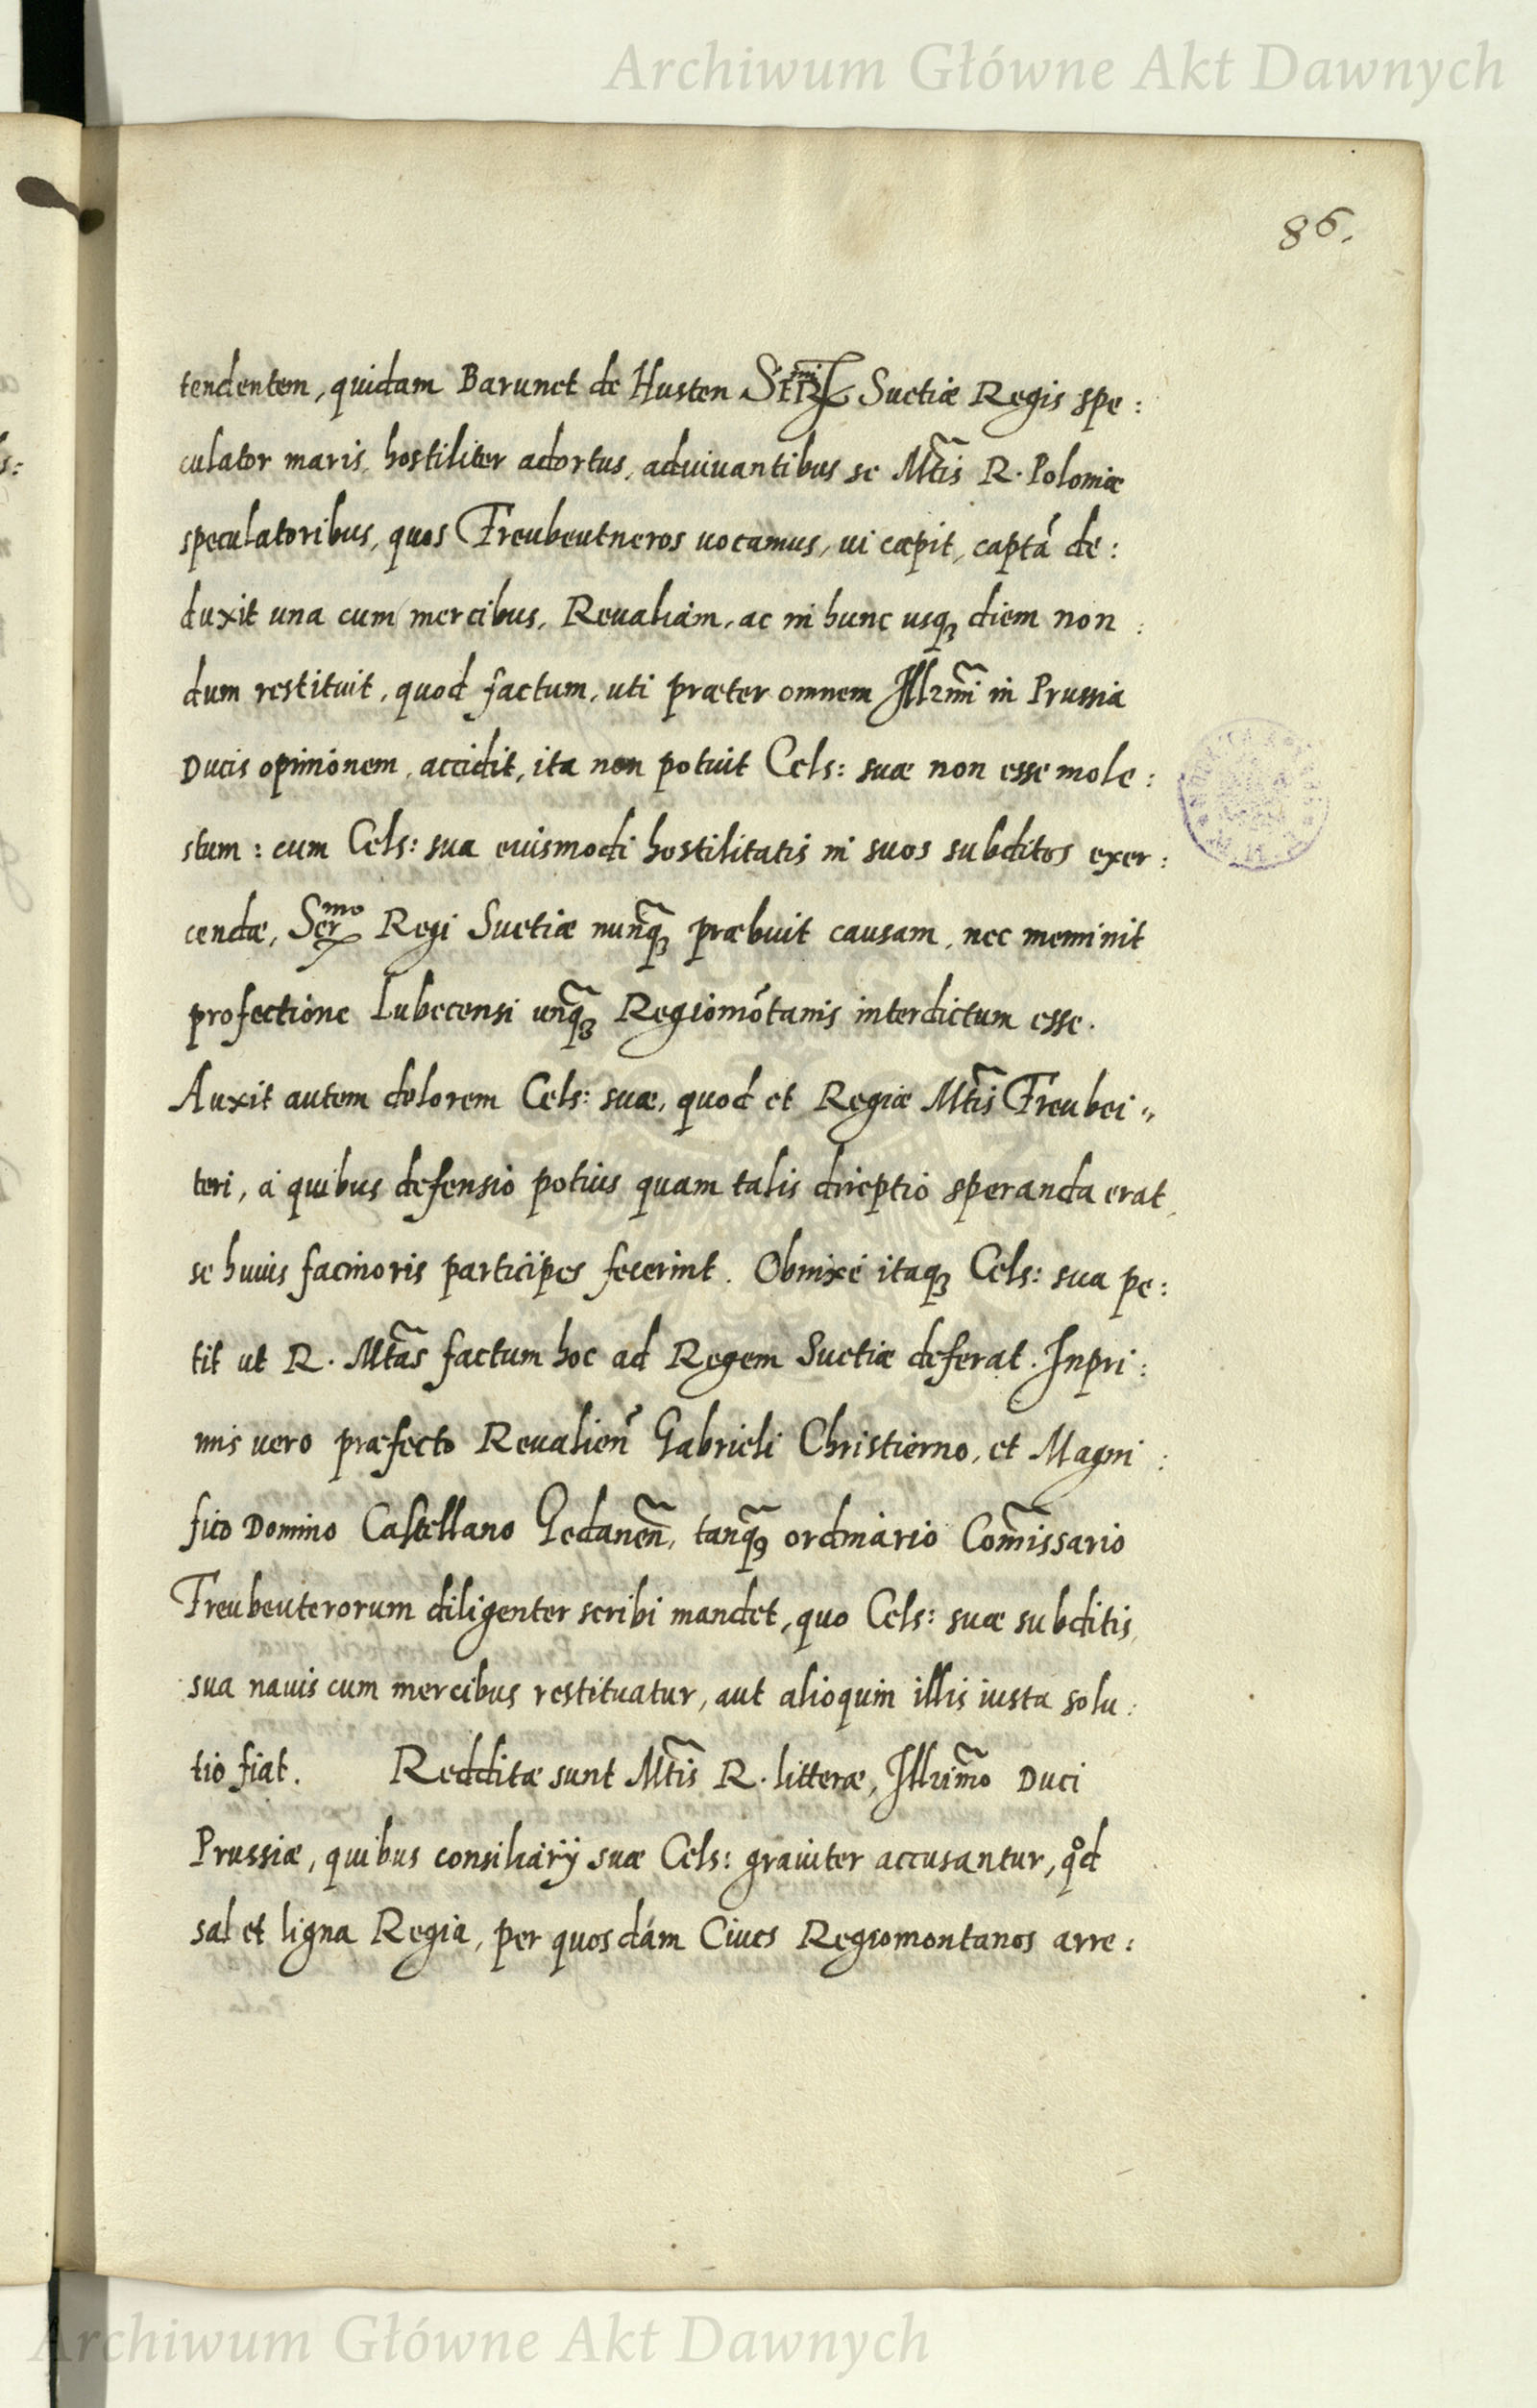 Archiwum Główne Akt Dawnych
86.
tendentem, quidam Barunet de Husten Sermi Suetiæ Regis spe:
culator maris, hostiliter adortus, adiuuantibus se Mtis R. Poloniæ
speculatoribus, quos Freubeutneros uocamus, ui cæpit, captá de:
duxit una cum mercibus, Reualiam, ac in hunc usq₃ diem non:
dum restituit, quod factum, uti præter omnem Illrmi in Prussia
Ducis opinionem, accidit, ita non potuit Cels: suæ non esse mole:
stum: cum Cels: sua euismodi hostilitatis in suos subditos exer:
cendæ, Sermo Regi Suetiæ nunq₃ præbuit causam, nec meminit
profectione Lubecensi unq₃ Regiomõtanis interdictum esse.
Auxit autem dolorem Cels: suæ, quod et Regiæ Mtis Freubei„
teri, á quibus defensio potius quam talis direptio speranda erat,
se huius facinoris participes fecerint. Obnixé itaq₃ Cels: sua pe:
tit ut R. Mtas factum hoc ad Regem Suetiæ deferat. Inpri:
mis uero præfecto Reualieñ Gabrieli Christierno, et Magni:
fico Domino Castellano Gedaneñ, tanq₃ ordinario Com̃issario
Freubeuterorum diligenter scribi mandet, quo Cels: suæ subditis,
sua nauis cum mercibus restituatur, aut alioquin illis iusta solu:
tio fiat. Redditæ sunt Mtis R. litteræ, Illrimo Duci
Prussiæ, quibus consiliarij suæ Cels: grauiter accusantur, qd
sal et ligna Regia, per quosdám Ciues Regiomontanos arre:
Archiwum Główne Akt Dawnych